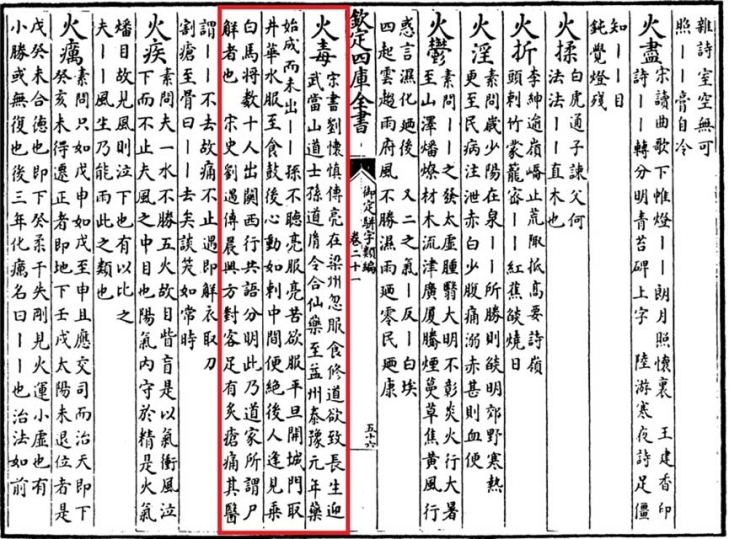 雜詩室空無可
照——膏自冷
火盡 宋讀曲歌下帷燈——朗月照懷裏 王建香印
詩——轉分明青苔碑上字 陸游寒夜詩足僵
知——日
鈍覺燈殘
火揉 白虎通子諫父何
法法——直木也
火折 李紳逾嶺嶠止荒陬抵高要詩嶺
頭刺竹蒙籠宻——紅蕉燄燒日
火淫 素問歲少陽在泉——所勝則燄明郊野寒熱
更至民病注泄赤白少腹痛溺赤甚則血便
火鬱 素問——之發太虛腫翳大明不彰炎火行大暑
至山澤燔燎材木流津廣厦騰煙蔓草焦黄風行
惑言濕化廼後 又二之氣—反—白埃
四起雲趨雨府風不勝濕雨廼零民廼康
欽定四庫全書
御定駢字類編
卷二十一
五十六
火毒 宋書劉懷慎傳亮在梁州忽服食修道欲致長生迎
武當山道士孫道胤令合仙藥至益州泰豫元年藥
始成而未出——孫不聽亮服亮苦欲服平旦開城門取
井華水服至食鼓後心動如刺中間便絶後人逢見乘
白馬將數十人出關西行共語分明此乃道家所謂尸
解者也 宋史劉遇傳晨興方對客足有炙瘡痛其醫
謂——不去故痛不止遇即解衣取刀
割瘡至骨曰——去矣談笑如常時
火疾 素問夫一水不勝五火故目眥盲是以氣衝風泣
下而不止夫風之中目也陽氣内守於精是火氣
燔目故見風則泣下也有以比之
夫——風生乃能雨此之類也
火癘 素問只如戊申如戊至申且應交司而治天即下
癸亥未得遷正者即地下壬戌太陽未退位者是
戊癸未合德也即下癸柔干失剛見火運小虚也有
小勝或無復也後三年化癘名曰——也治法如前